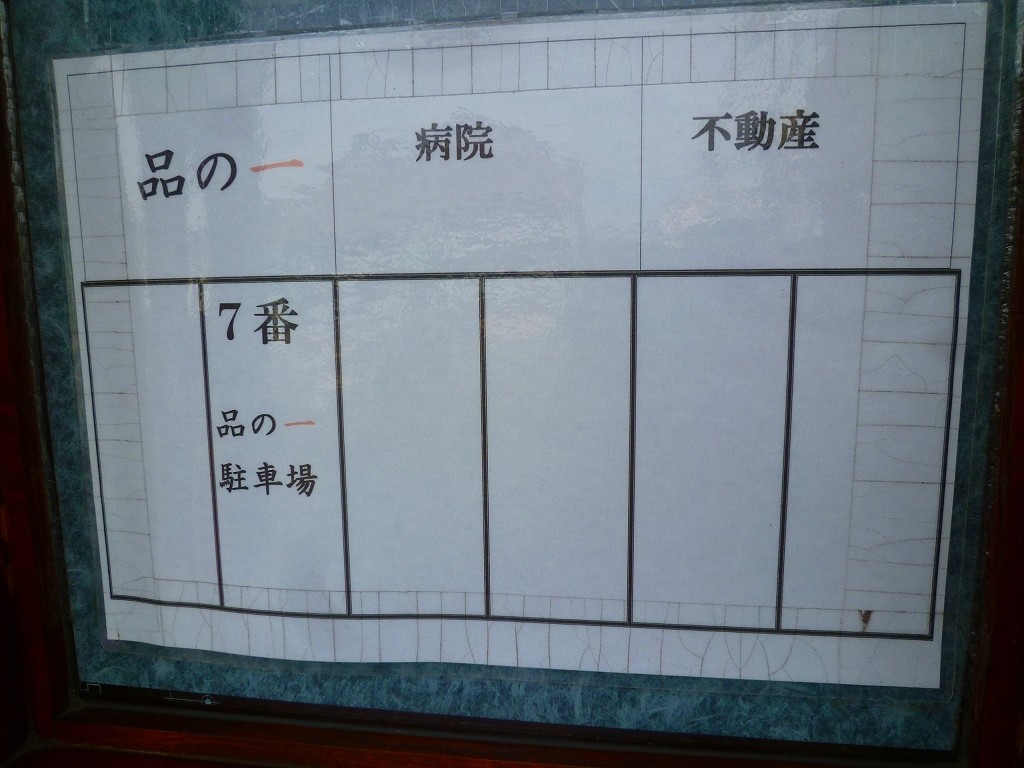 品の一
病院
不動産
7番
品の一
駐車場